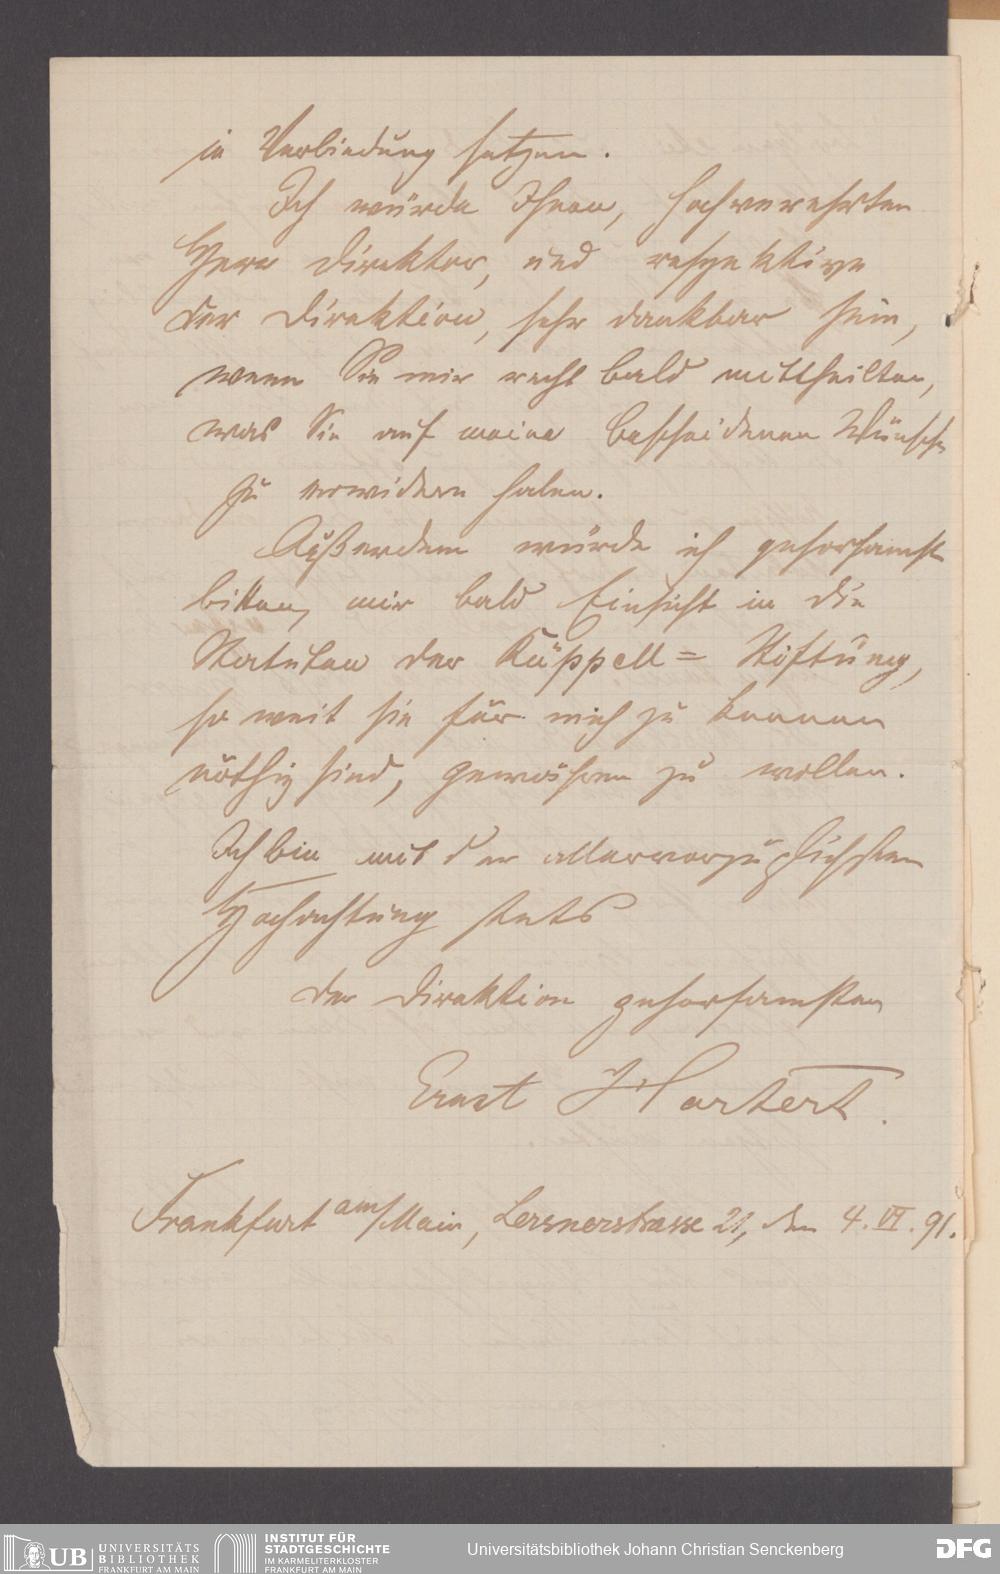 in Verbindung setzen.
Ich würde Ihnen, hochverehrter
Herr Direktor, und respektive
der Direktion, sehr dankbar sein,
wenn Sie mir recht bald mittheilten,
was Sie auf meine bescheidenen Wünsche
zu erwidern haben.
Außerdem würde ich gehorsamst
bitten, mir bald Einsicht in die
Statuten der Rüppell= Stiftung,
so weit sie für mich zu kennen
nöthig sind, gewähren zu wollen.
Ich bin mit der allervorzüglichsten
Hochachtung stets
der Direktion gehorsamsten
Ernst Hartert.
Frankfurt am/Main, Lersnerstrasse 21, den 4. VI. 91.
UB UNIVERSITÄTS
BIBLIOTHEK
FRANKFURT AM MAIN
INSTITUT FÜR
STADTGESCHICHTE
IM KARMELITERKLOSTER
FRANKFURT AM MAIN
Universitätsbibliothek Johann Christian Senckenberg
DFG